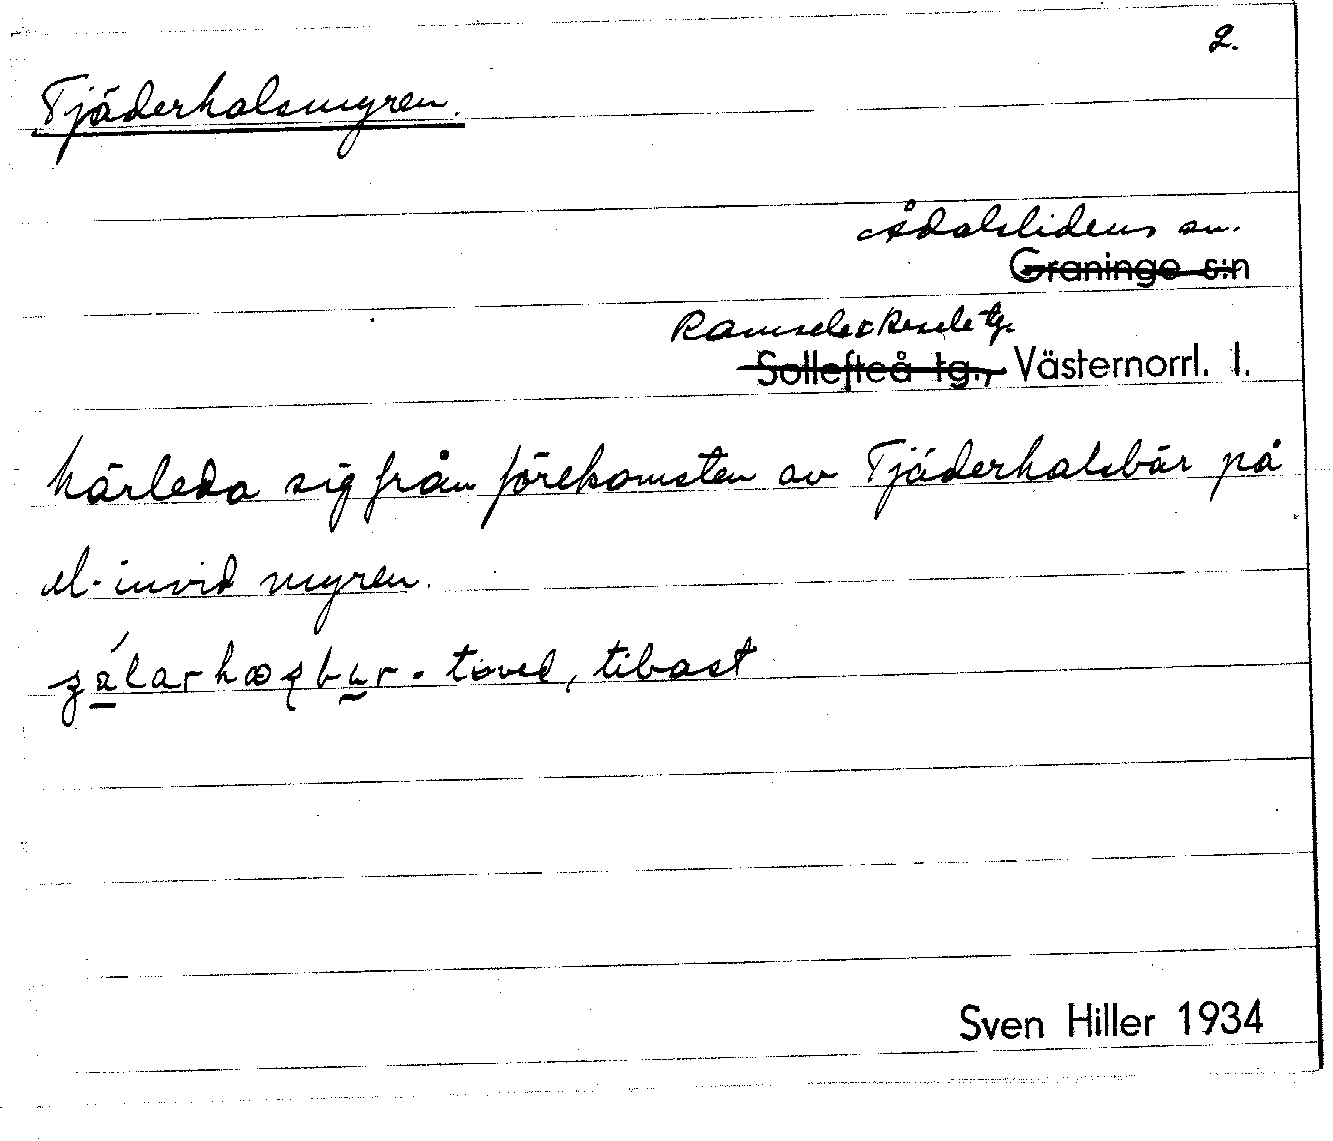 2.
Tjäderhalsmyren.
Ådalslidens sn.
Graninge s:n
Ramsele & Resele tg.
Sollefteå tg., Västernorrl. l.
härleda sig från förekomsten av Tjäderhalsbär på
el. invid myren.
tived, tibast
Sven Hiller 1934